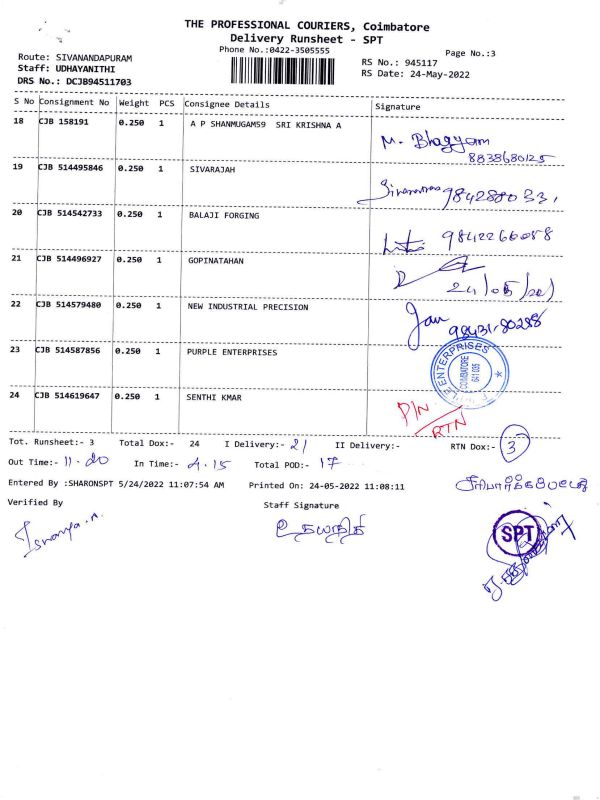 THE PROFESSIONAL COURIERS, Coimbatore
Delivery Runsheet - SPT
Phone No.:0422-3505555
Page No.:3
Route: SIVANANDAPURAM
RS No.: 945117
Staff: UDHAYANITHI
RS Date: 24-May-2022
DRS No.: DCJB94511703
S No Consignment No Weight PCS Consignee Details Signature
18 CJB 158191 0.250 1 A P SHANMUGAM59 SRI KRISHNA A
M. Bhagyam
8838680125
19 CJB 514495846 0.250 1 SIVARAJAH
20 CJB 514542733 0.250 1 BALAJI FORGING
9842266058
21 CJB 514496927 0.250 1 GOPINATAHAN
22 CJB 514579480 0.250 1 NEW INDUSTRIAL PRECISION
23 CJB 514587856 0.250 1 PURPLE ENTERPRISES
PURPLE ENTERPRISES
COIMBATORE
641 035
24 CJB 514619647 0.250 1 SENTHI KMAR
P/N
RTN
Tot. Runsheet:- 3 Total Dox:- 24 I Delivery:- 21 II Delivery:- RTN Dox:- 3
Out Time:- 11.20 In Time:- 4.15 Total POD:- 17
Entered By :SHARONSPT 5/24/2022 11:07:54 AM Printed On: 24-05-2022 11:08:11
Verified By Staff Signature
உதயநிதி
SPT